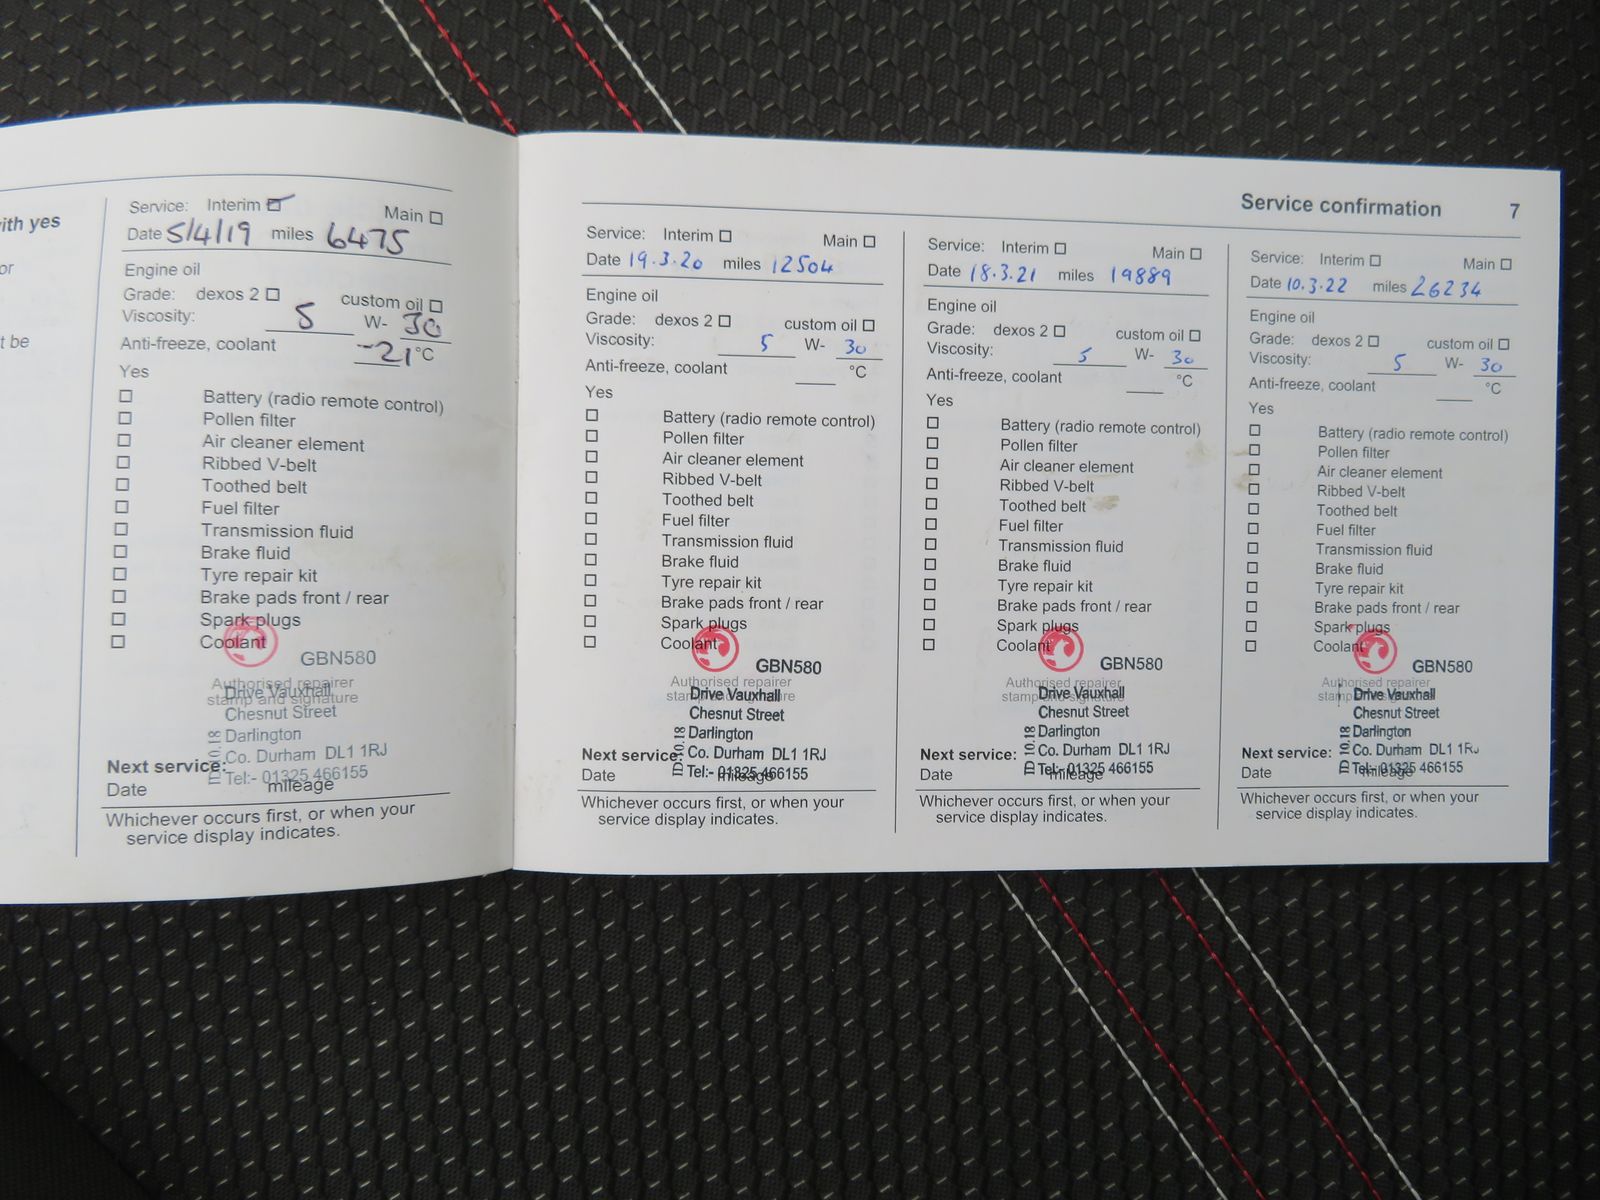 with yes
or
t be
Service: Interim Main
Date 5/4/19 miles 6475
Engine oil
Grade: dexos 2 custom oil
Viscosity: 5 W- 30
Anti-freeze, coolant -21°C
Yes
Battery (radio remote control)
Pollen filter
Air cleaner element
Ribbed V-belt
Toothed belt
Fuel filter
Transmission fluid
Brake fluid
Tyre repair kit
Brake pads front / rear
Spark plugs
Coolant
GBN580
Authorised repairer
stamp and signature
Drive Vauxhall
Chesnut Street
Darlington
Co. Durham DL1 1RJ
Tel:- 01325 466155
Next service:
Date mileage
Whichever occurs first, or when your
service display indicates.
Service confirmation 7
Service: Interim Main
Date 19.3.20 miles 12504
Engine oil
Grade: dexos 2 custom oil
Viscosity: 5 W- 30
Anti-freeze, coolant °C
Yes
Battery (radio remote control)
Pollen filter
Air cleaner element
Ribbed V-belt
Toothed belt
Fuel filter
Transmission fluid
Brake fluid
Tyre repair kit
Brake pads front / rear
Spark plugs
Coolant
GBN580
Authorised repairer
stamp and signature
Drive Vauxhall
Chesnut Street
Darlington
Co. Durham DL1 1RJ
Tel:- 01325 466155
Next service:
Date mileage
Whichever occurs first, or when your
service display indicates.
Service: Interim Main
Date 18.3.21 miles 19889
Engine oil
Grade: dexos 2 custom oil
Viscosity: 5 W- 30
Anti-freeze, coolant °C
Yes
Battery (radio remote control)
Pollen filter
Air cleaner element
Ribbed V-belt
Toothed belt
Fuel filter
Transmission fluid
Brake fluid
Tyre repair kit
Brake pads front / rear
Spark plugs
Coolant
GBN580
Authorised repairer
stamp and signature
Drive Vauxhall
Chesnut Street
Darlington
Co. Durham DL1 1RJ
Tel:- 01325 466155
Next service:
Date mileage
Whichever occurs first, or when your
service display indicates.
Service: Interim Main
Date 10.3.22 miles 26234
Engine oil
Grade: dexos 2 custom oil
Viscosity: 5 W- 30
Anti-freeze, coolant °C
Yes
Battery (radio remote control)
Pollen filter
Air cleaner element
Ribbed V-belt
Toothed belt
Fuel filter
Transmission fluid
Brake fluid
Tyre repair kit
Brake pads front / rear
Spark plugs
Coolant
GBN580
Authorised repairer
stamp and signature
Drive Vauxhall
Chesnut Street
Darlington
Co. Durham DL1 1RJ
Tel:- 01325 466155
Next service:
Date mileage
Whichever occurs first, or when your
service display indicates.